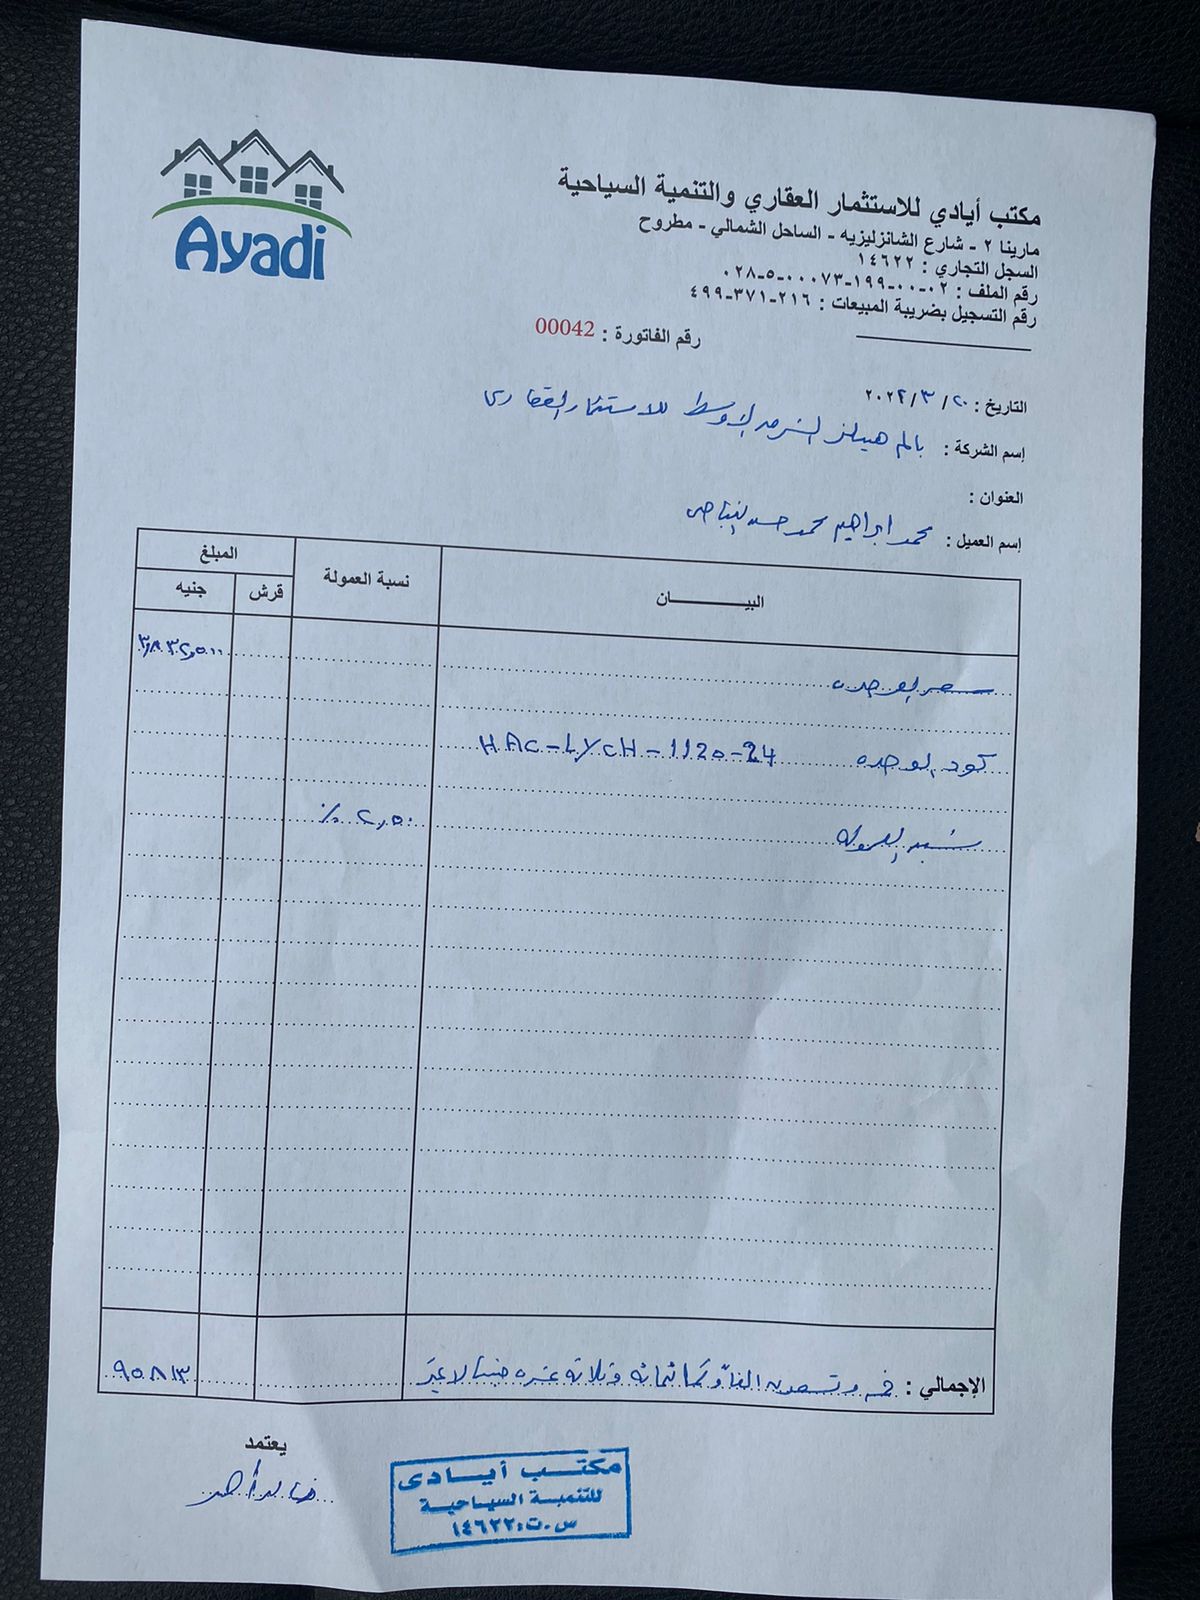 Ayadi
مكتب أيادي للاستثمار العقاري والتنمية السياحية
مارينا ٢ - شارع الشانزليزيه - الساحل الشمالي - مطروح
السجل التجاري : ١٤٦٢٢
رقم الملف : ٠٢-٠٠-١٩٩-٠٠٠٧٣-٥-٠٢٨
رقم التسجيل بضريبة المبيعات : ٢١٦-٣٧١-٤٩٩
رقم الفاتورة : 00042
التاريخ : ٢٠/٣/٢٠٢٢
إسم الشركة : بالم هيلز الشرق الاوسط للاستثمار العقارى
العنوان :
إسم العميل : محمد ابراهيم محمد حسن
البيـــــــــان نسبة العمولة المبلغ
قرش جنيه
سعر الوحده ٣,٨٣٢,٥٠٠
كود الوحده HAC-LYCH-1120-24
نسبه العموله ٢,٥٠ %
الإجمالي : خمسه وتسعون الفاً وثمانمائه وثلاثه عشره جنيها لا غير ٩٥٨١٣
يعتمد
مكتــب أيــادى
للتنميـة السيـاحيـة
س.ت: ١٤٦٢٢